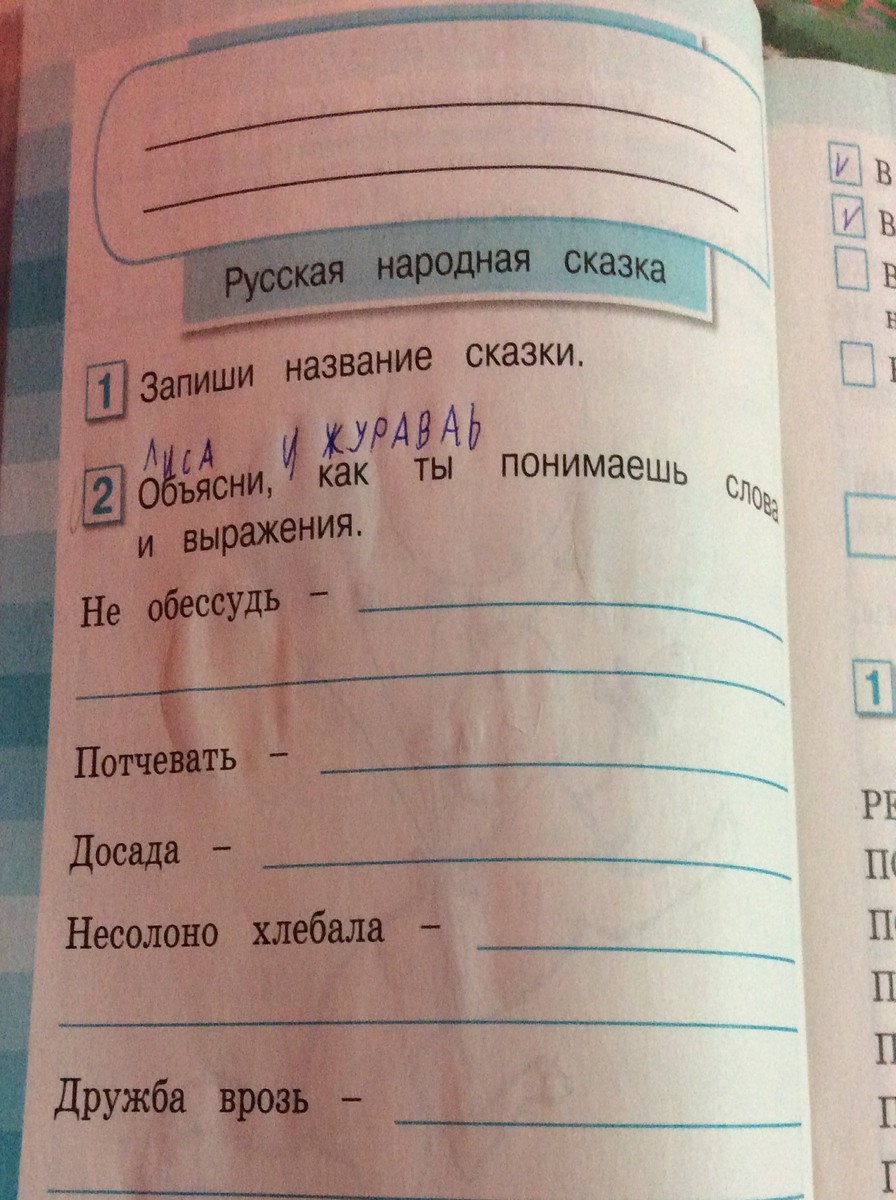 Русская народная сказка
1 Запиши название сказки.
Лиса и журавль
2 Объясни, как ты понимаешь слова
и выражения.
Не обессудь –
Потчевать –
Досада –
Несолоно хлебала –
Дружба врозь –
V В
V В
В
н
1
РЕ
ПО
ПО
П
П